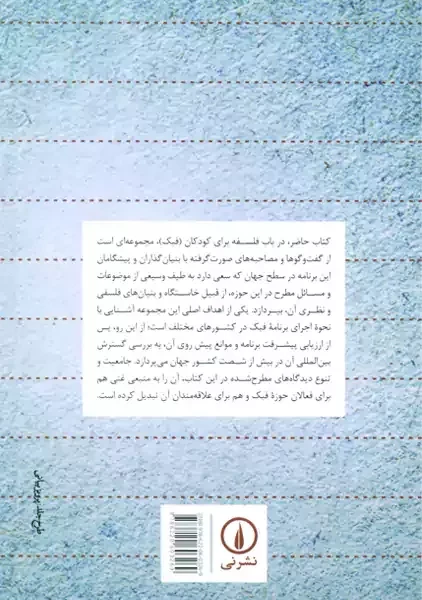 کتاب حاضر، در باب فلسفه برای کودکان (فبک)، مجموعه‌ای است
از گفت‌وگوها و مصاحبه‌های صورت‌گرفته با بنیان‌گذاران و پیشگامان
این برنامه در سطح جهان که سعی دارد به طیف وسیعی از موضوعات
و مسائل مطرح در این حوزه، از قبیل خاستگاه و بنیان‌های فلسفی
و نظری آن، بپردازد. یکی از اهداف اصلی این مجموعه آشنایی با
نحوهٔ اجرای برنامهٔ فبک در کشورهای مختلف است؛ از این رو، پس
از ارزیابی پیشرفت برنامه و موانع پیش روی آن، به بررسی گسترش
بین‌المللی آن در بیش از شصت کشور جهان می‌پردازد. جامعیت و
تنوع دیدگاه‌های مطرح‌شده در این کتاب، آن را به منبعی غنی هم
برای فعالان حوزهٔ فبک و هم برای علاقه‌مندان آن تبدیل کرده است.
طرح جلد: پرویز بیانی
نشرنی